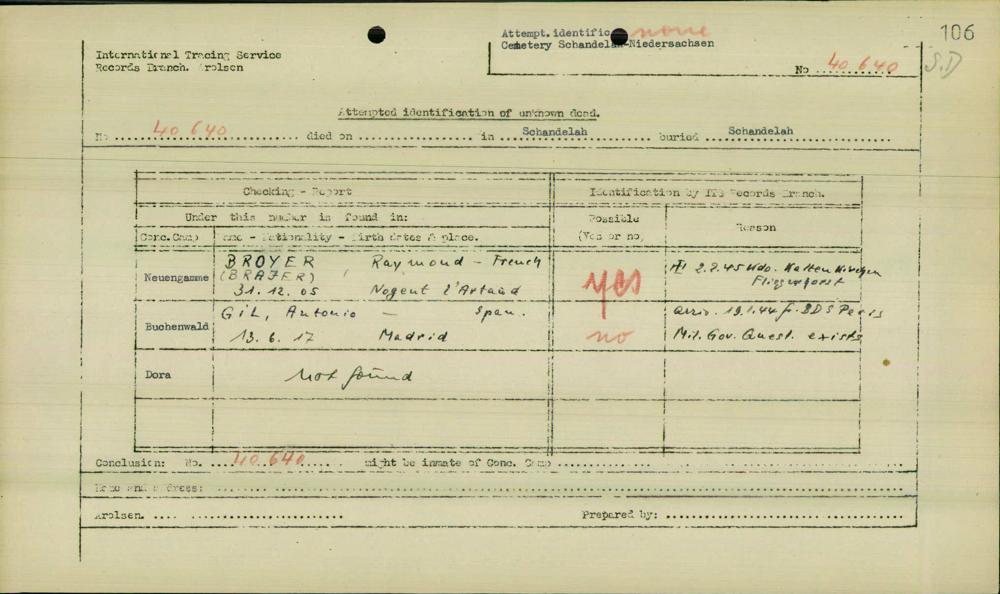 106
S.D
Attempt. identific none
Cemetery Schandelah-Niedersachsen
International Tracing Service
Records Branch. Arolsen
No 40 640
Attempted identification of unknown dead.
No 40 640 died on in Schandelah buried Schandelah
Checking - Report Identification by ITS Records Branch.
Under this number is found in: Possible (Yes or no) Reason
Conc. Camp Name - Nationality - Birth dates & place.
Neuengamme BROYER Raymond - French yes 2.2.45 Kdo. Kaltenkirchen
(BRAJER) Fliegerhorst
31.12.05 Nogent l'Artaud
Buchenwald GIL, Antonio - Span. no arriv. 19.1.44 fr. BDS Paris
13.6.17 Madrid Mil. Gov. Quest. exists
Dora not found
Conclusion: No. 40 640 might be inmate of Conc. Camp
Name and address:
Arolsen. Prepared by: